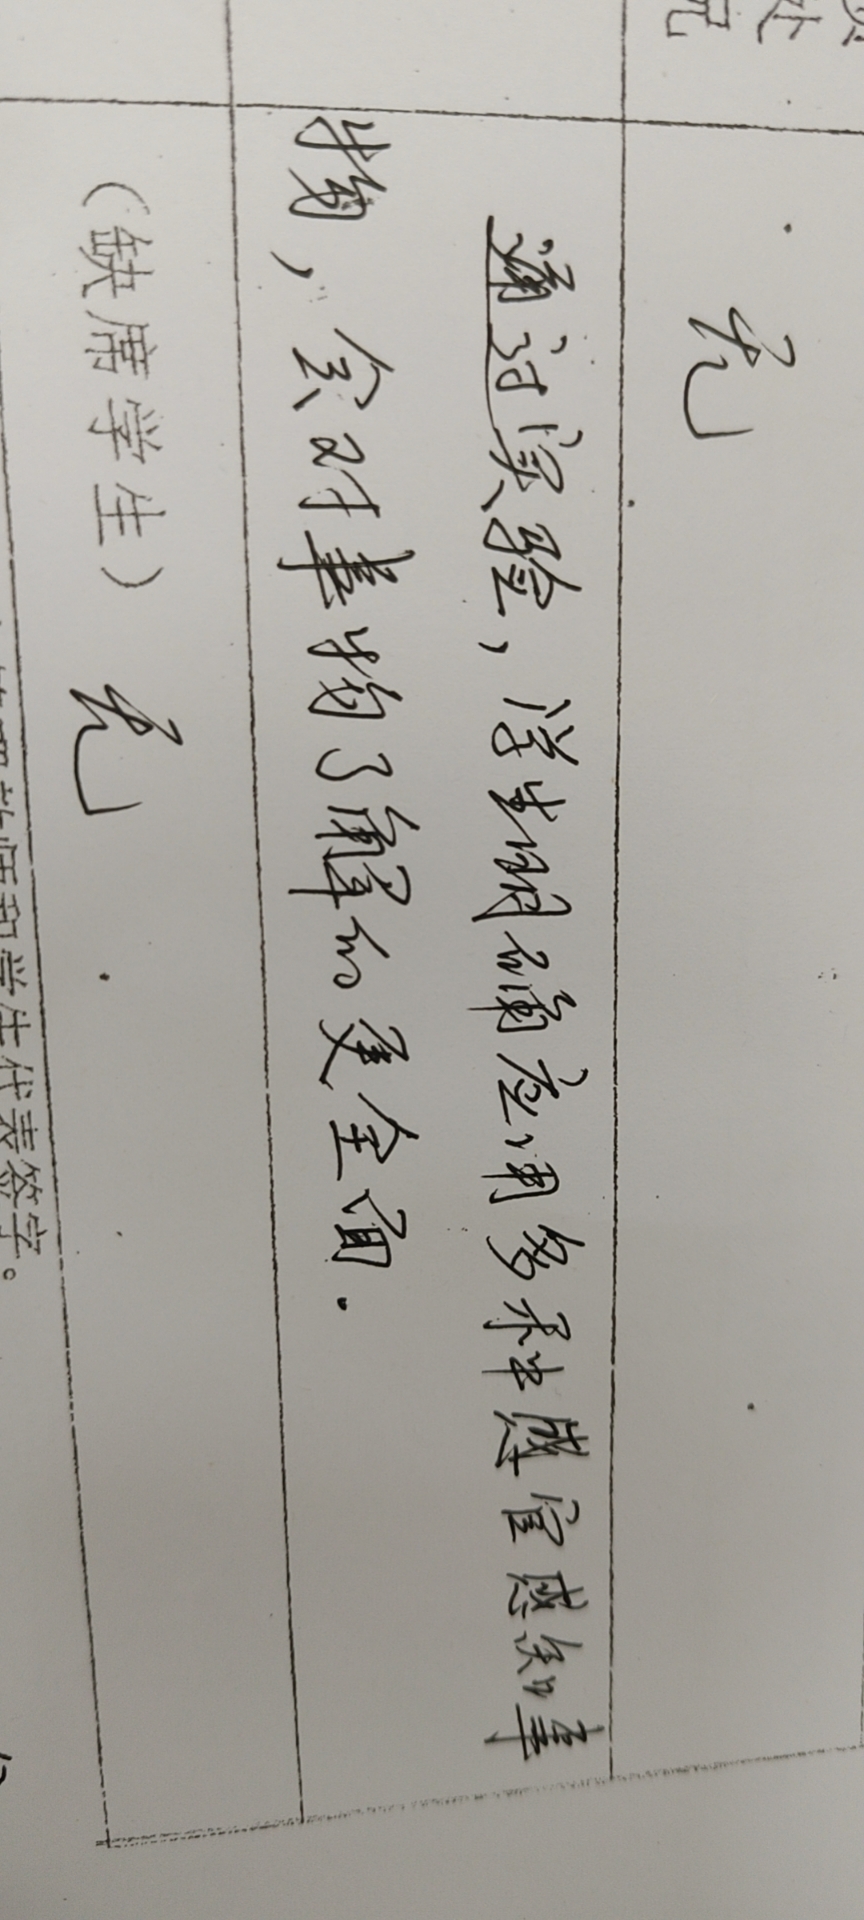 处
况
无
通过实验，学生明确应用多种感官感知事
物，会对事物了解的更全面.
（缺席学生）无
师和学生代表签字。